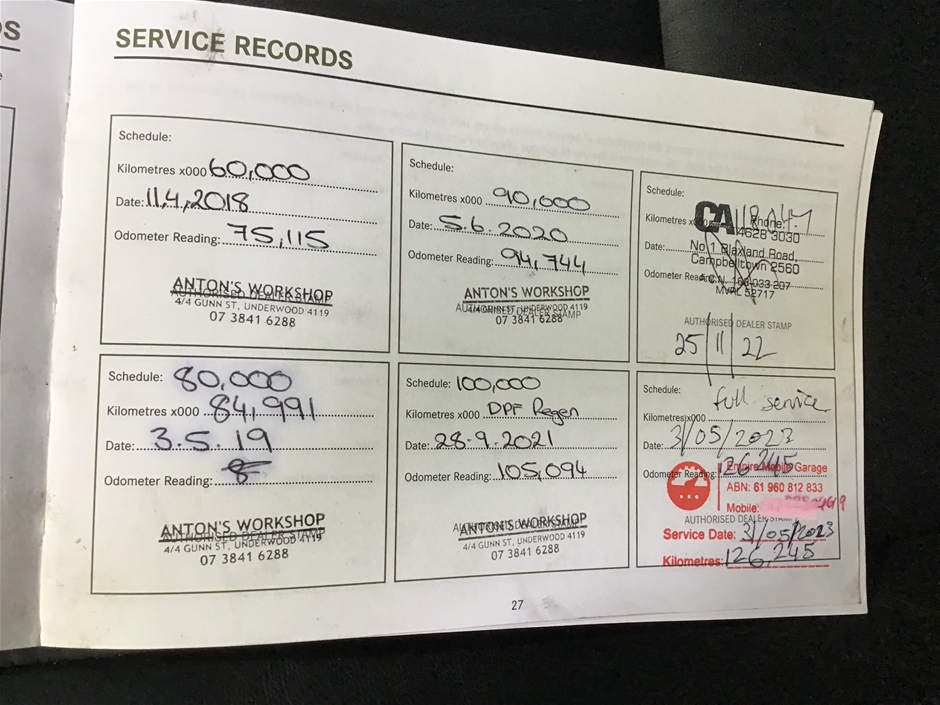 SERVICE RECORDS
Schedule:
Kilometres x000 60,000
Date: 11.4.2018
Odometer Reading: 75,115
ANTON'S WORKSHOP
AUTHORISED DEALER STAMP
4/4 GUNN ST, UNDERWOOD 4119
07 3841 6288
Schedule: 80,000
Kilometres x000 84,991
Date: 3.5.19
Odometer Reading:
ANTON'S WORKSHOP
AUTHORISED DEALER STAMP
4/4 GUNN ST, UNDERWOOD 4119
07 3841 6288
Schedule:
Kilometres x000 90,000
Date: 5.6.2020
Odometer Reading: 94,744
ANTON'S WORKSHOP
AUTHORISED DEALER STAMP
4/4 GUNN ST, UNDERWOOD 4119
07 3841 6288
Schedule: 100,000
Kilometres x000 DPF Regen
Date: 28-9-2021
Odometer Reading: 105,094
ANTON'S WORKSHOP
AUTHORISED DEALER STAMP
4/4 GUNN ST, UNDERWOOD 4119
07 3841 6288
Schedule:
Kilometres
CA Phone:
4628 3030
Date:
No.1 Blaxland Road,
Campbelltown 2560
Odometer Reading:
A.C.N.
MVRL 52717
AUTHORISED DEALER STAMP
25/11/22
Schedule: full service
Kilometres x000
Date: 31/05/2023
Odometer Reading: 126245
Empire Mobile Garage
ABN: 61 960 812 833
Mobile:
AUTHORISED DEALER STAMP
Service Date: 31/05/2023
Kilometres: 126,245
27